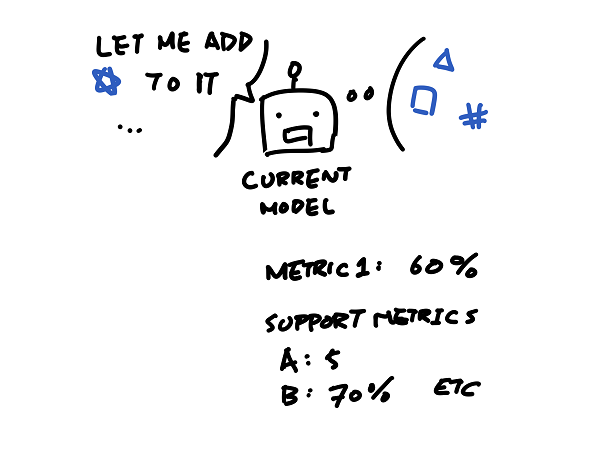 LET ME ADD
TO IT
...
CURRENT
MODEL
METRIC 1: 60%
SUPPORT METRICS
A: 5
B: 70% ETC
#